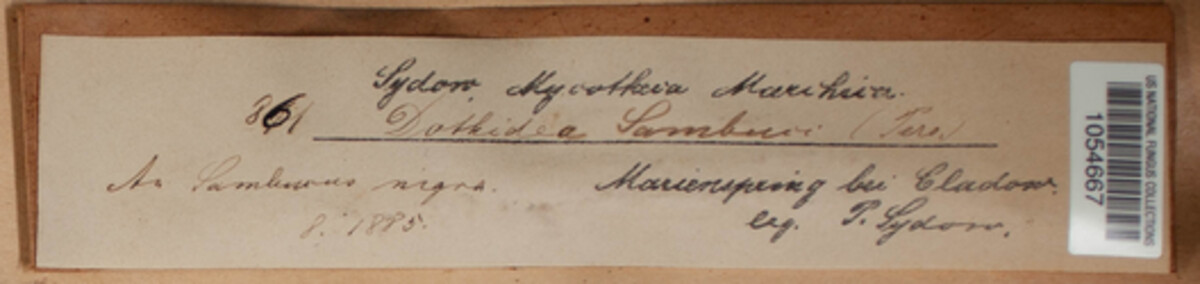 Sydow, Mycotheca Marchica.
861 Dothidea Sambuci (Pers.)
An Sambucus nigra. Marienspring bei Cladow.
8. 1885. leg. P. Sydow.
US NATIONAL FUNGUS COLLECTIONS
1054667